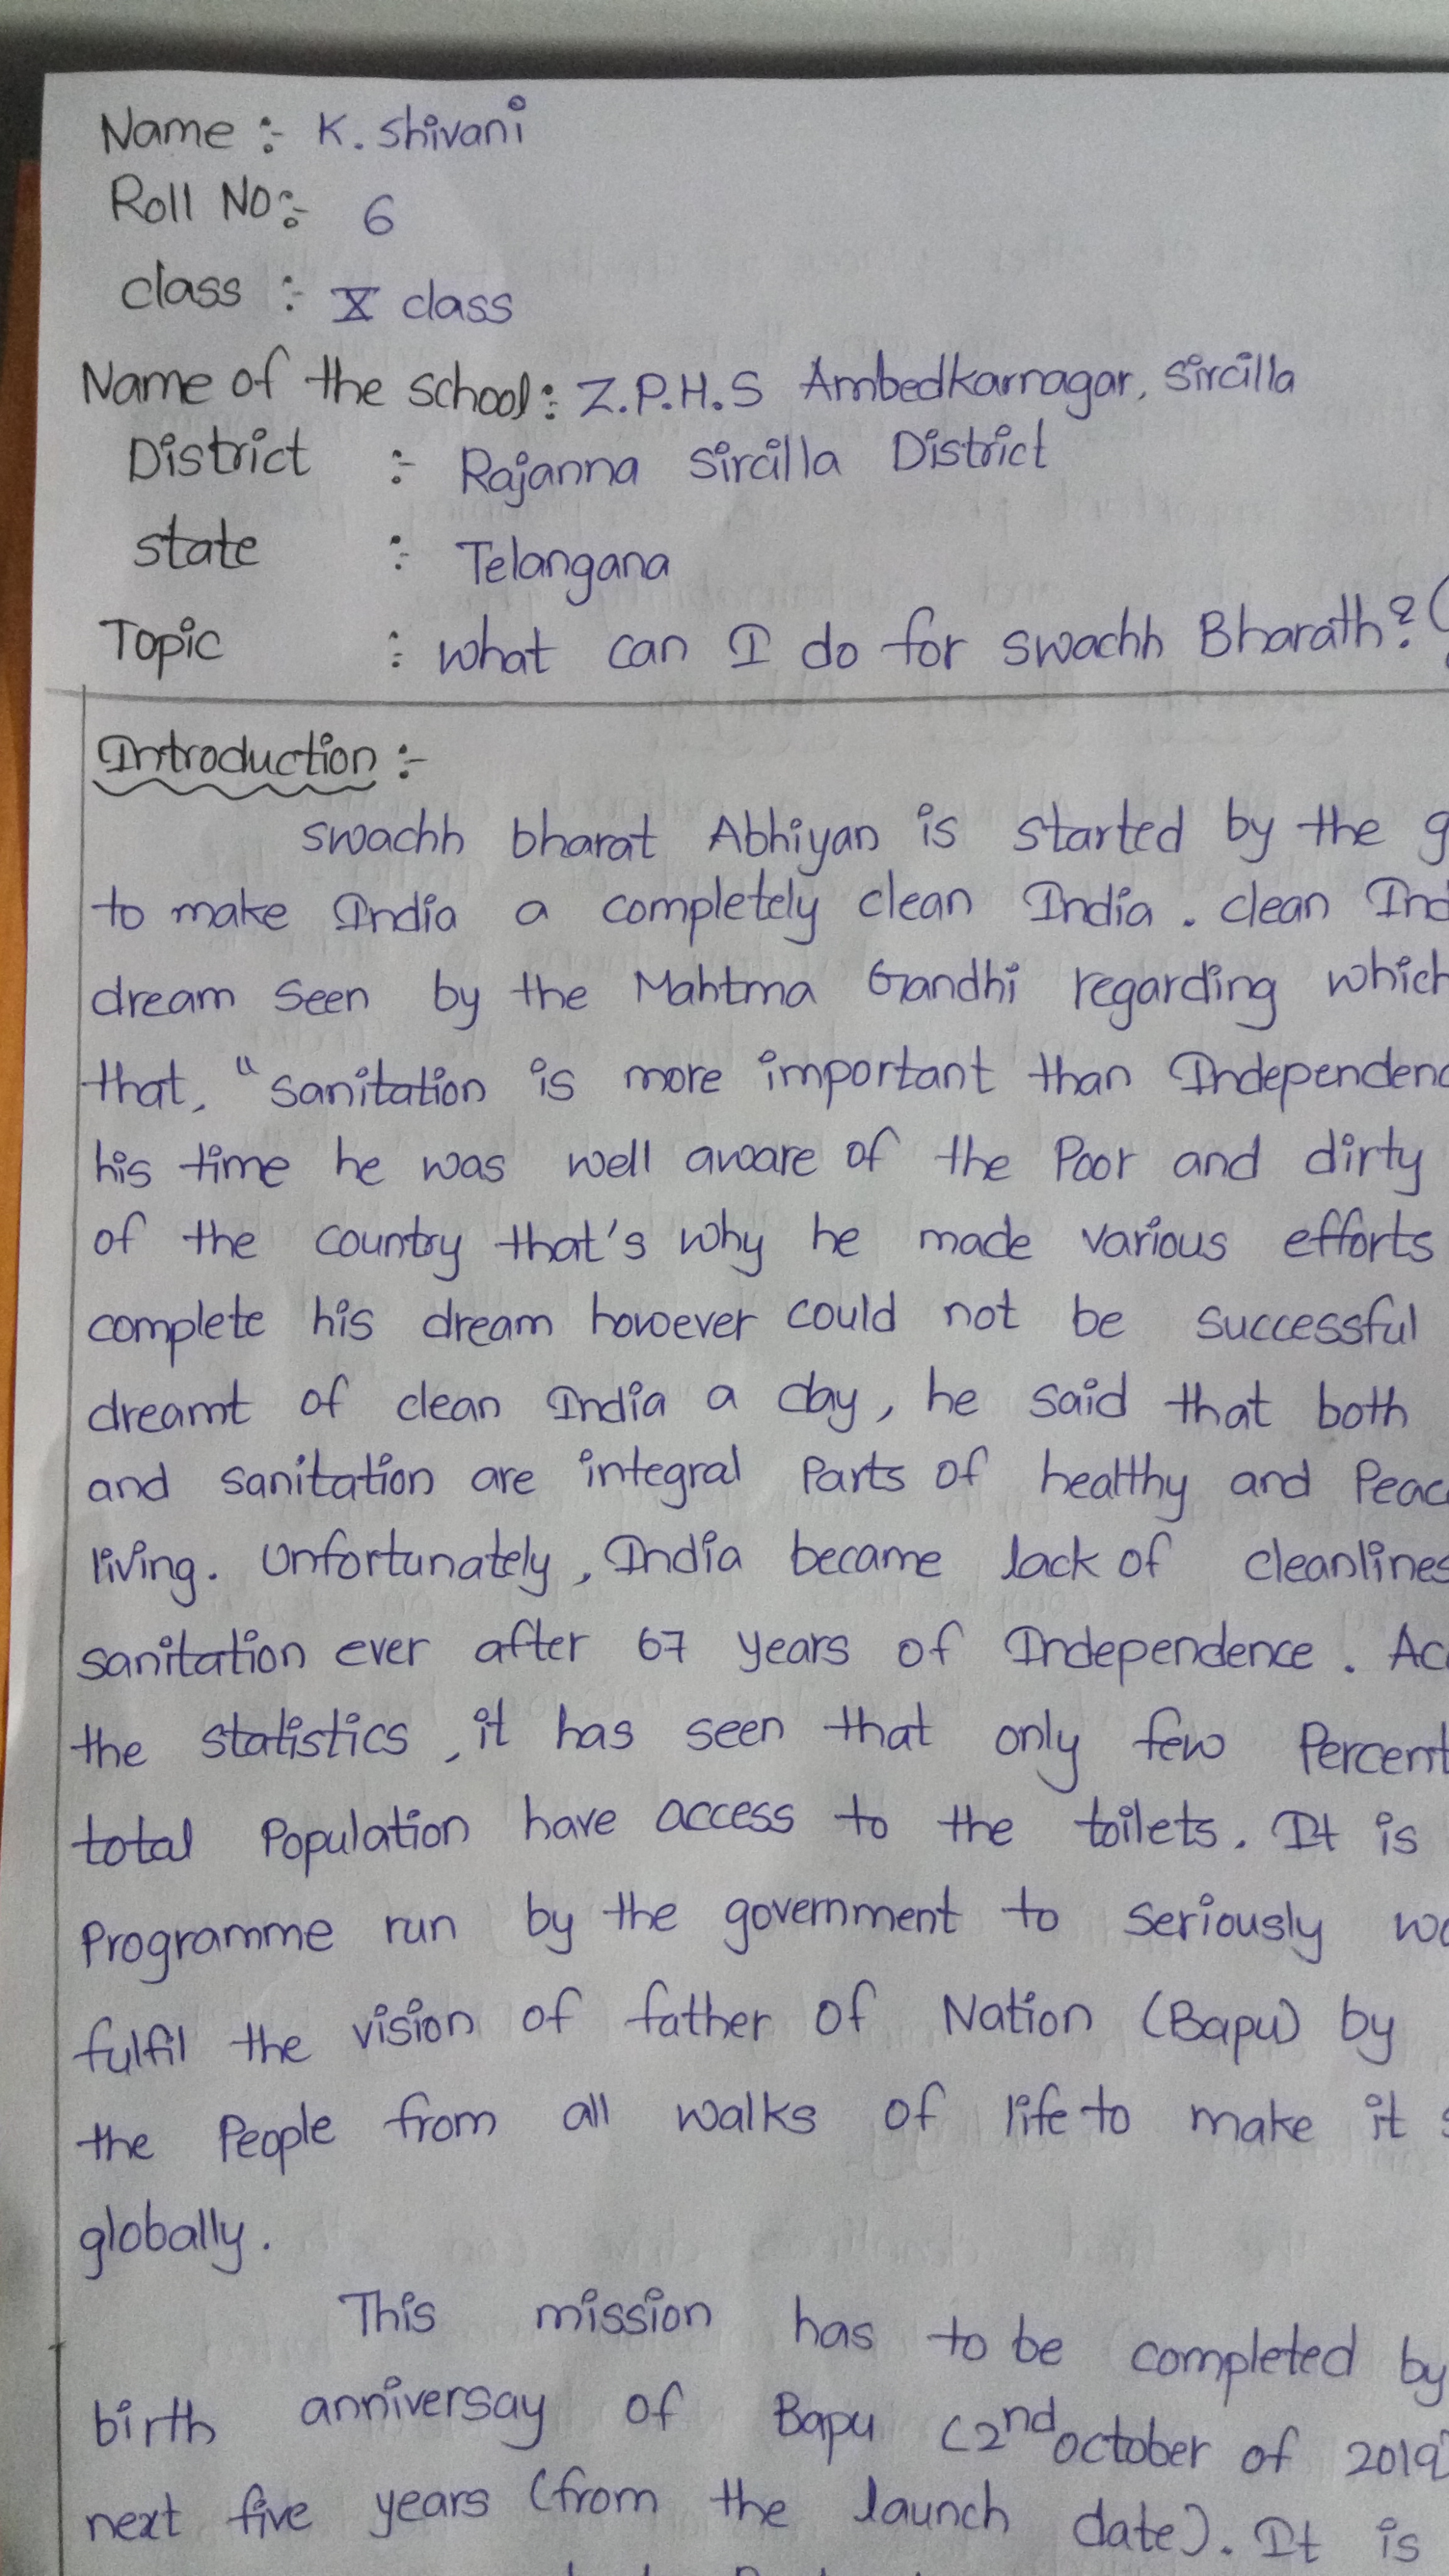 Name :- K. Shivani
Roll No:- 6
class :- X class
Name of the school:- Z.P.H.S Ambedkarnagar, Sircilla
District :- Rajanna Sircilla District
state :- Telangana
Topic :- what can I do for swachh Bharath? (
Introduction :-
swachh bharat Abhiyan is started by the g
to make India a completely clean India. clean Ind
dream seen by the Mahtma Gandhi regarding which
that, "sanitation is more important than Independenc
his time he was well aware of the Poor and dirty
of the country that's why he made various efforts
complete his dream however could not be successful
dreamt of clean India a day, he said that both
and sanitation are integral Parts of healthy and Peac
living. Unfortunately, India became lack of cleanlines
sanitation ever after 67 years of Independence. Ac
the statistics, it has seen that only few Percent
total Population have access to the toilets. It is
Programme run by the government to seriously wo
fulfil the vision of father of Nation (Bapu) by
the People from all walks of life to make it s
globally.
This mission has to be completed by
birth anniversay of Bapu (2nd october of 2019
next five years (from the launch date). It is